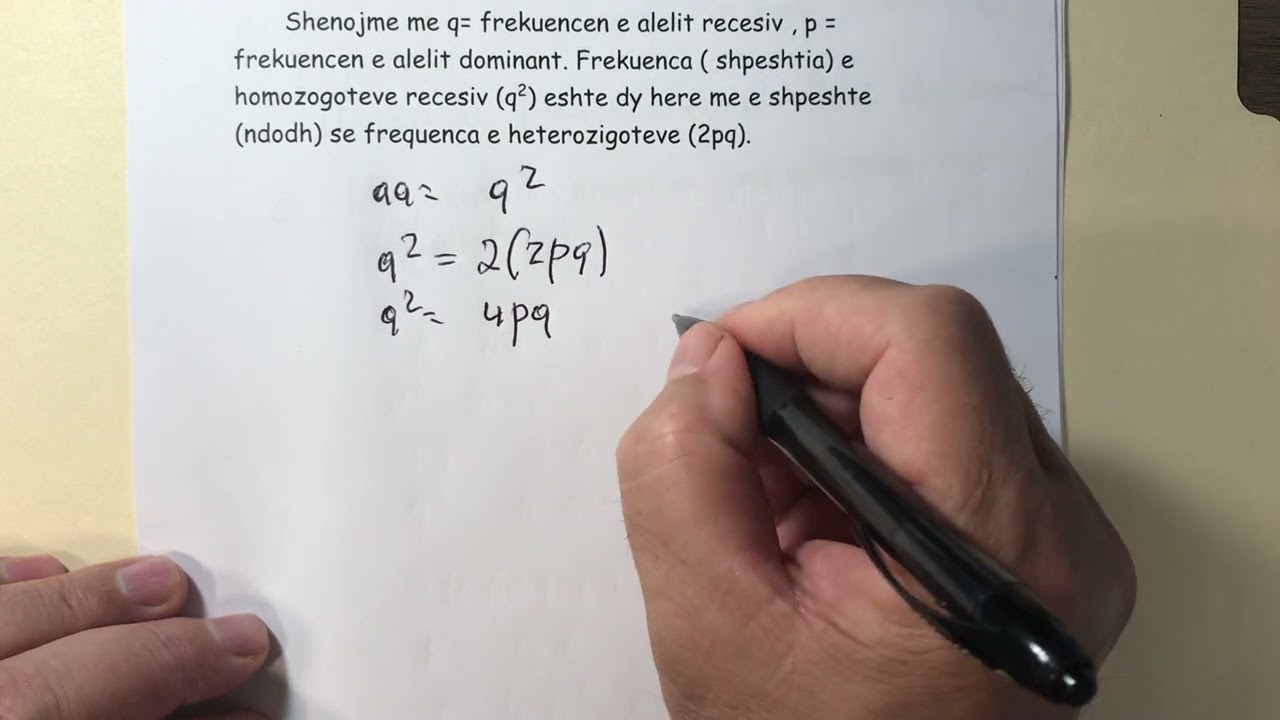 Shenojme me q= frekuencen e alelit recesiv , p =
frekuencen e alelit dominant. Frekuenca ( shpeshtia) e
homozogoteve recesiv (q²) eshte dy here me e shpeshte
(ndodh) se frequenca e heterozigoteve (2pq).
aa= q²
q² = 2(2pq)
q² = 4pq